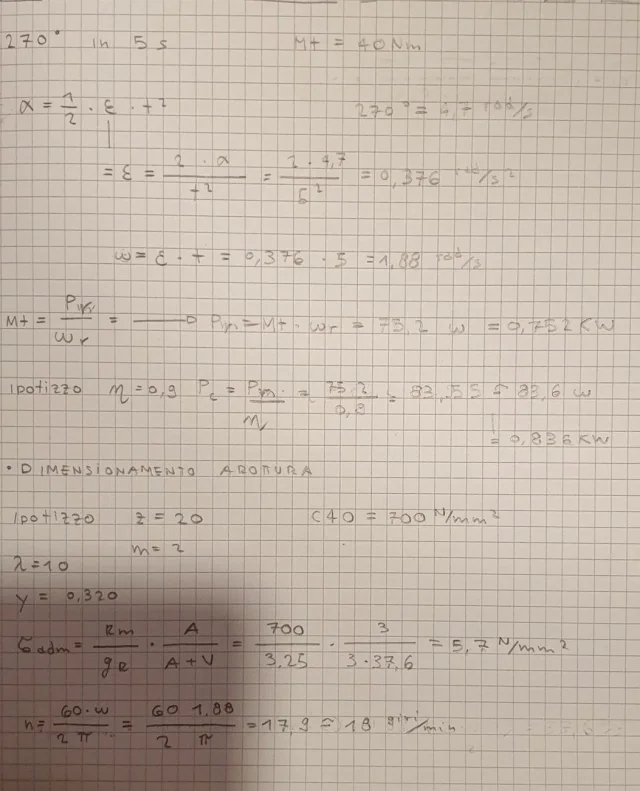 270° in 5 s Mt = 40 Nm
α = 1/2 · ε · t² 270° = 4,7 rad/s
= ε = 2 · α / t² = 2 · 4,7 / 5² = 0,376 rad/s²
ω = ε · t = 0,376 · 5 = 1,88 rad/s
Mt = Pm / ωr = → Pm = Mt · ωr = 75,2 w = 0,752 KW
Ipotizzo η = 0,9 Pc = Pm / η = 75,2 / 0,9 = 83,55 = 83,6 w
= 0,836 KW
• DIMENSIONAMENTO A ROTURA
Ipotizzo z = 20 C40 = 700 N/mm²
m = 2
λ = 10
y = 0,320
σadm = Rm / gR · A / A + V = 700 / 3,25 · 3 / 3 · 37,6 = 5,7 N/mm²
n = 60 · ω / 2 π = 60 1,88 / 2 π = 17,9 = 18 giri/min